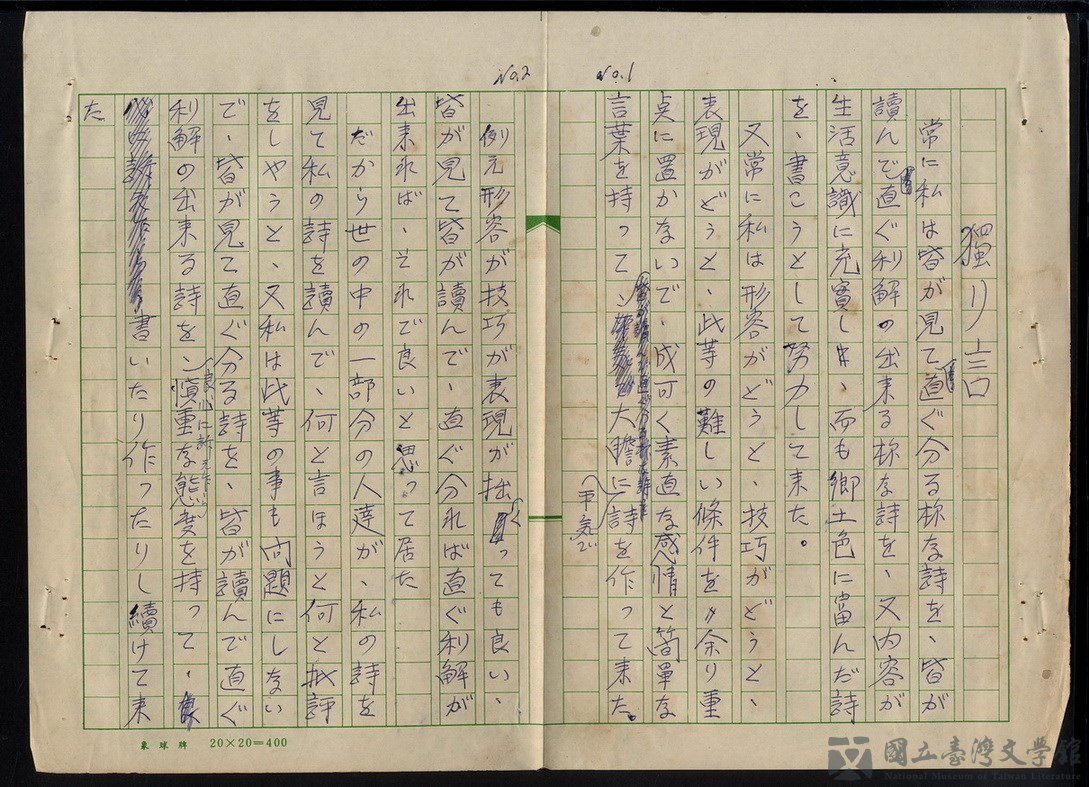 No.1
獨り言
常に私は皆が見て直ぐ分る様な詩を、皆が
讀んで直ぐ利解の出来る様な詩を、又内容が
生活意識に充實し、而も郷土色に富んだ詩
を、書こうとして努力して来た。
又常に私は形容がどうと、技巧がどうと、
表現がどうと、此等の難しい條件を余り重
点に置かないで、成可く素直な感情と簡單な
言葉を持って、大膽に平気で詩を作って来た。
No.2
例え形容が技巧が表現が拙くっても良い、
皆が見て皆が讀んで、直ぐ分れば直ぐ利解が
出来れば、それで良いと思って居た
だから世の中の一部分の人達が、私の詩を
見て私の詩を讀んで、何と言ほうと何と批評
をしやうと、又私は此等の事も問題にしない
で、皆が見て直ぐ分る詩を、皆が讀んで直ぐ
利解の出来る詩を、良心に訴え慎重な態度を持って、
書いたり作ったりし續けて来
た
象球牌 20×20=400
國立臺灣文學館
National Museum of Taiwan Literature